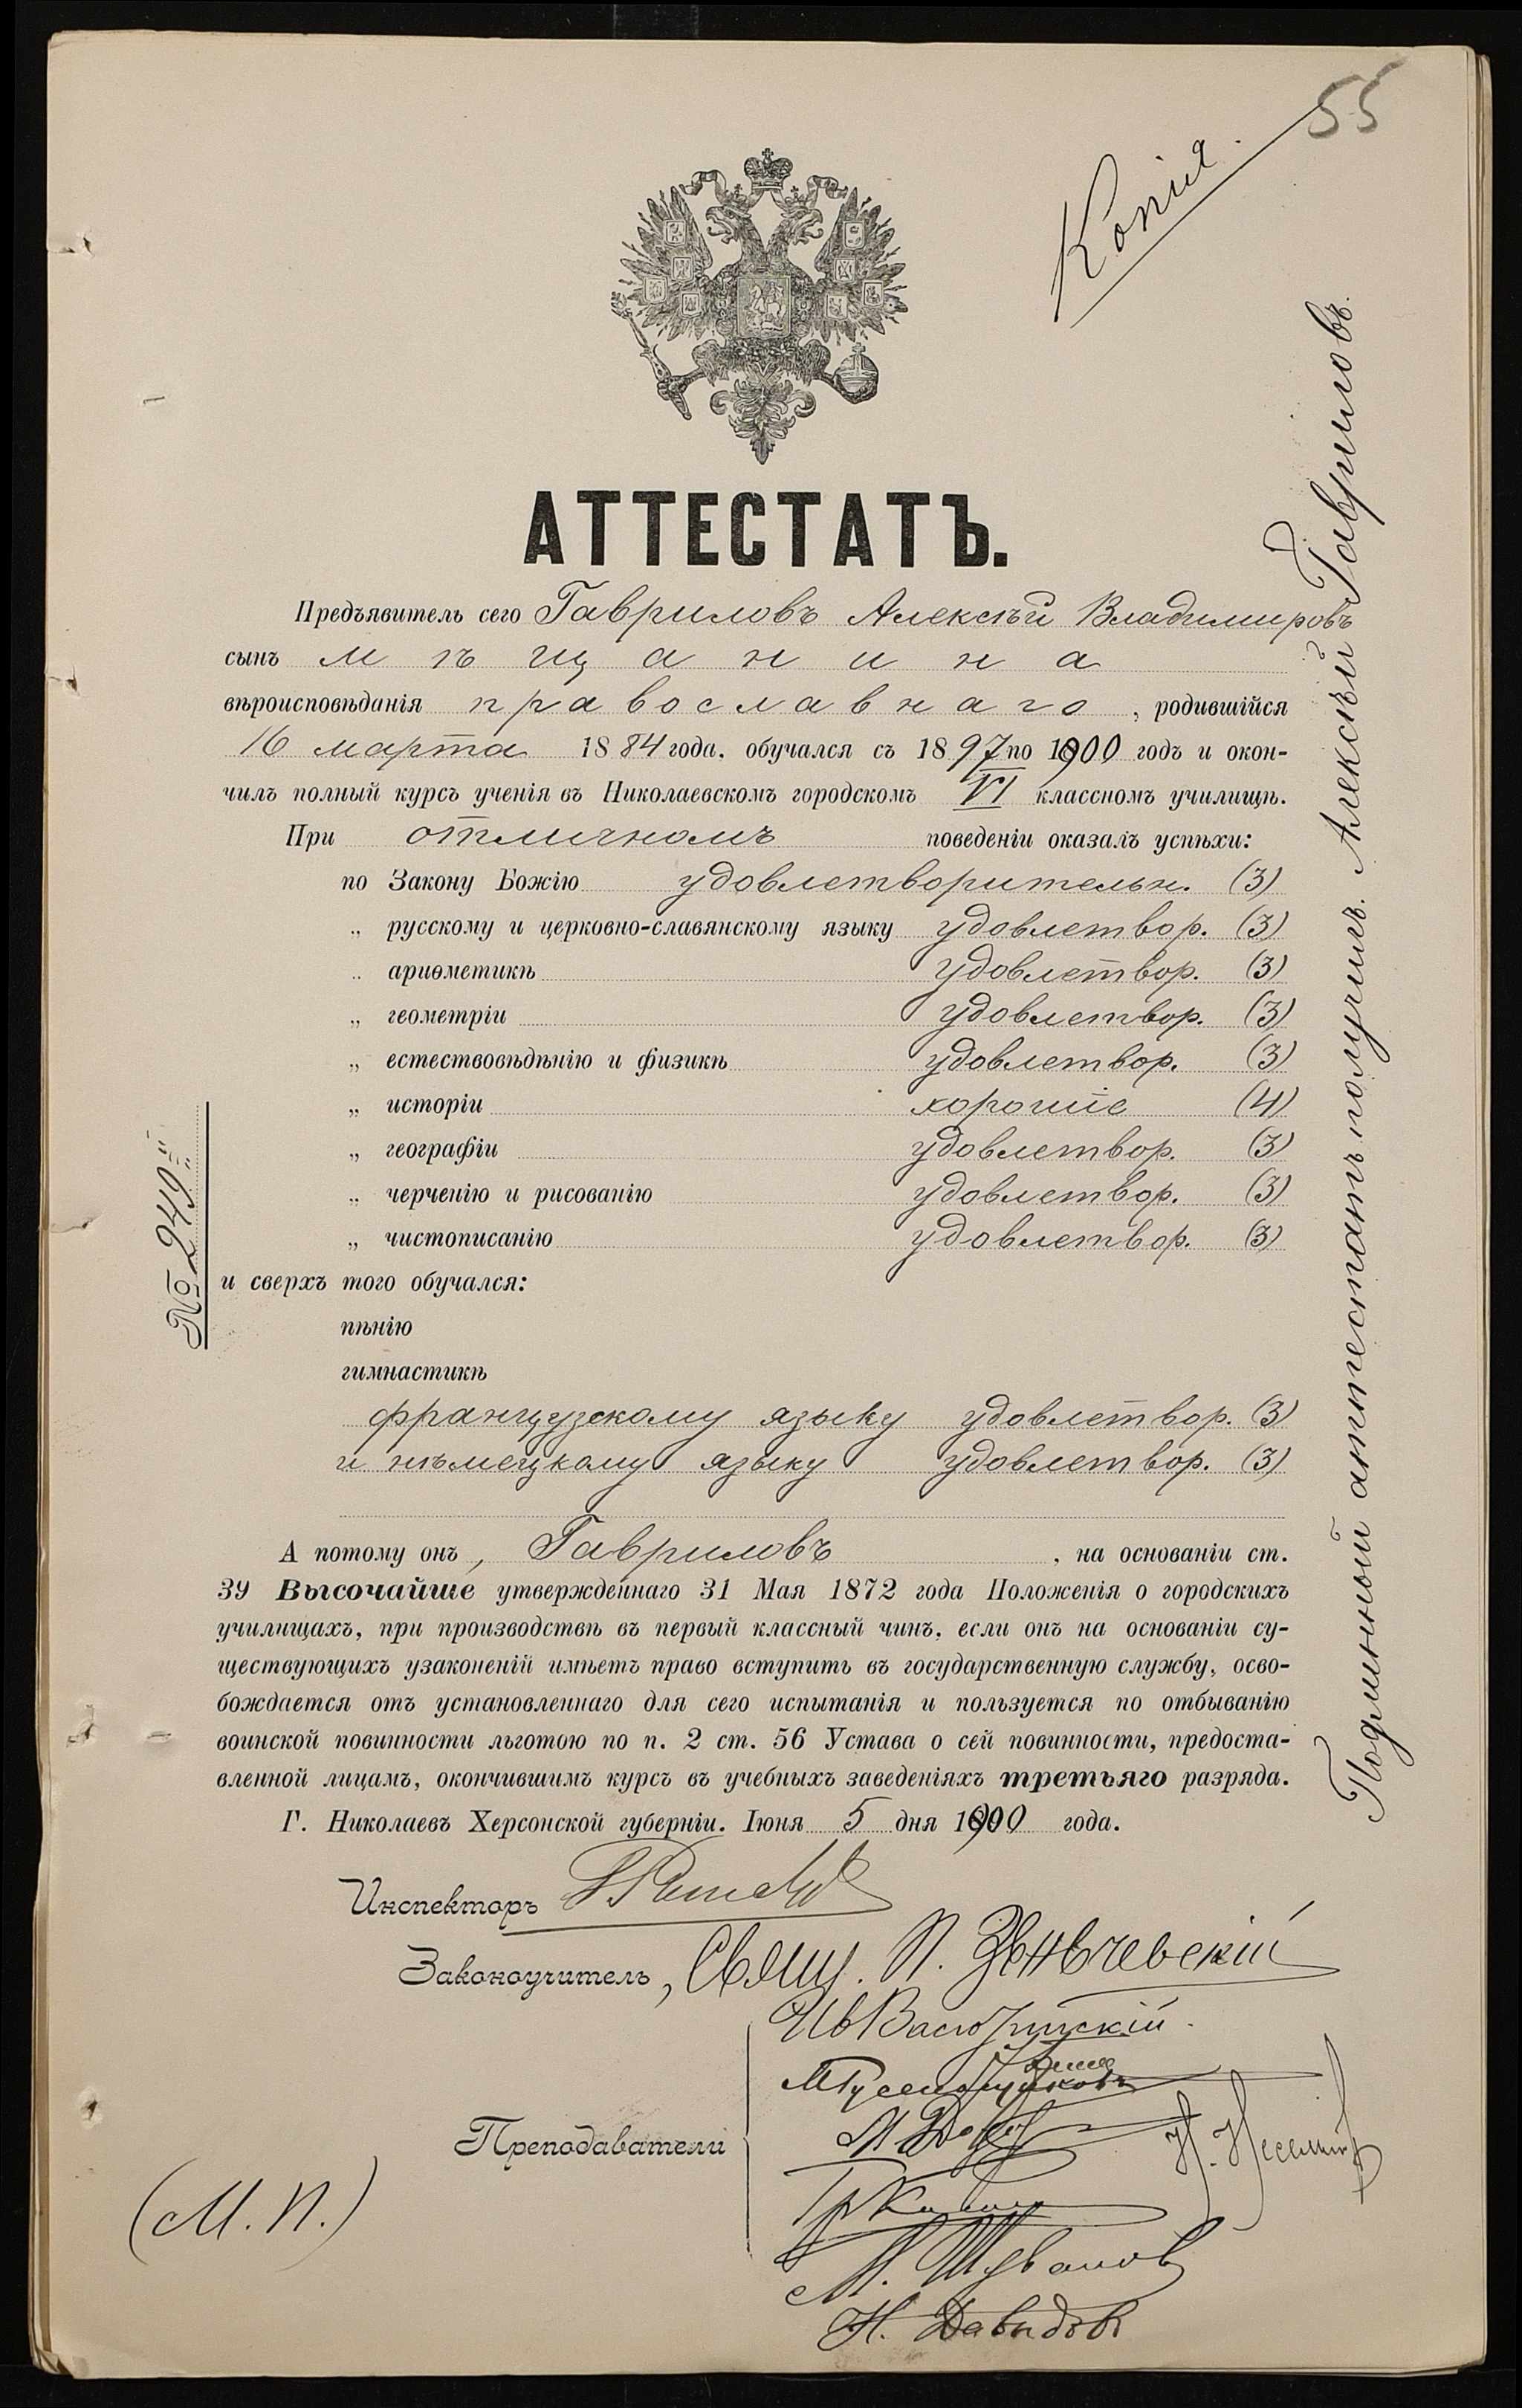 55
Копія.
АТТЕСТАТЪ.
Предъявитель сего Гавриловъ Алексѣй Владимировъ
сынъ мѣщанина
вѣроисповѣданія православнаго, родившійся
16 марта 1884 года, обучался съ 1897 по 1900 годъ и окон-
чилъ полный курсъ ученія въ Николаевскомъ городскомъ VI классномъ училищѣ.
При отличномъ поведеніи оказалъ успѣхи:
по Закону Божію удовлетворительн. (3)
„ русскому и церковно-славянскому языку удовлетвор. (3)
„ ариѳметикѣ удовлетвор. (3)
„ геометріи удовлетвор. (3)
„ естествовѣдѣнію и физикѣ удовлетвор. (3)
„ исторіи хорошіе (4)
„ географіи удовлетвор. (3)
„ черченію и рисованію удовлетвор. (3)
„ чистописанію удовлетвор. (3)
и сверхъ того обучался:
пѣнію
гимнастикѣ
французскому языку удовлетвор. (3)
и нѣмецкому языку удовлетвор. (3)
А потому онъ, Гавриловъ, на основаніи ст.
39 Высочайше утвержденнаго 31 Мая 1872 года Положенія о городскихъ
училищахъ, при производствѣ въ первый классный чинъ, если онъ на основаніи су-
ществующихъ узаконеній имѣетъ право вступить въ государственную службу, осво-
бождается отъ установленнаго для сего испытанія и пользуется по отбыванію
воинской повинности льготою по п. 2 ст. 56 Устава о сей повинности, предоста-
вленной лицамъ, окончившимъ курсъ въ учебныхъ заведеніяхъ третьяго разряда.
Г. Николаевъ Херсонской губерніи. Іюня 5 дня 1900 года.
Инспекторъ
Законоучитель, Свящ. П.
Преподаватели
Н. Давидовъ
(М. П.)
№ 249
Подлинный аттестатъ получилъ. Алексѣй Гавриловъ.